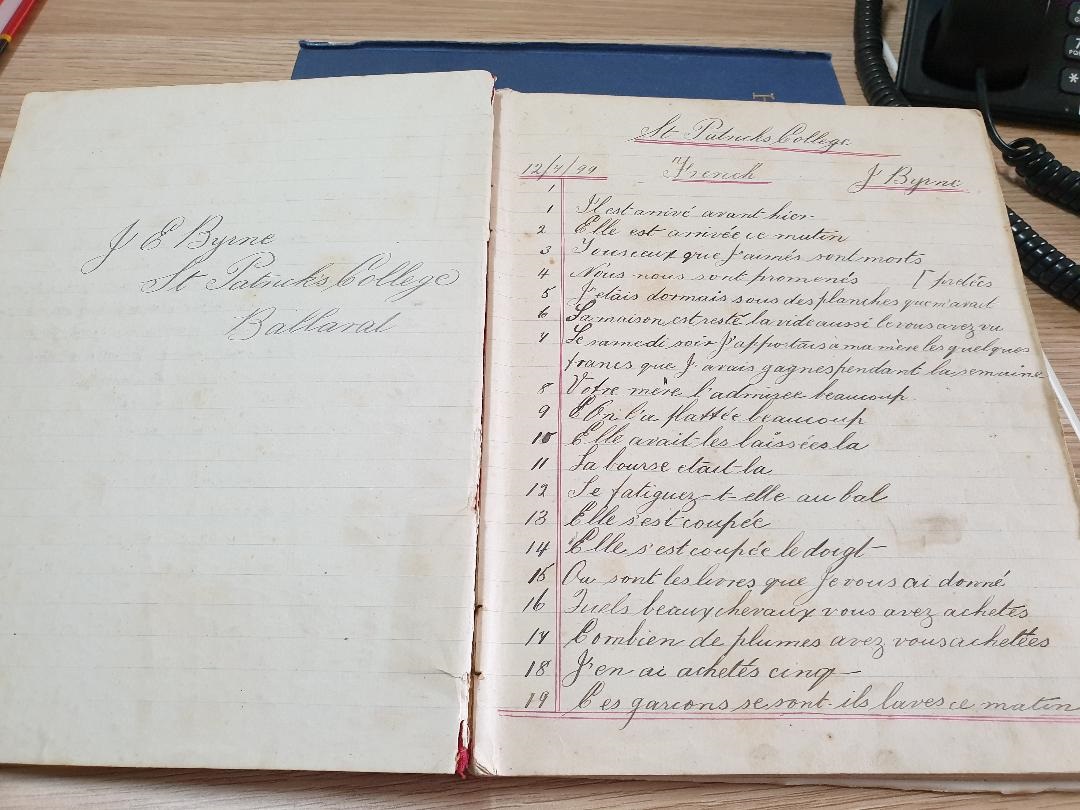 J E Byrne
St Patricks College
Ballarat
St Patricks College
12/7/99 French J Byrne
1
1 Il est arrivé avant hier
2 Elle est arrivée ce matin
3 que J'aimes sont morts
4 Nous nous sont promenés [ pretées
5 J'etais dormais sous des planches que m'avait
6 La maison est resté la vide aussi le vous avez vu
7 Le samedi soir J'apportais à ma mère les quelques
francs que J'avais gagnés pendant la semaine
8 Votre mère l'admiree beaucoup
9 On l'a flattée beaucoup
10 Elle avait les laissées la
11 La bourse etait la
12 Se fatiguez-t-elle au bal
13 Elle s'est coupée
14 Elle s'est coupée le doigt
15 Ou sont les livres que Je vous ai donné
16 Quels beaux chevaux vous avez achetés
17 Combien de plumes avez vous achetées
18 J'en ai achetés cinq
19 Ces garcons se sont-ils lavés ce matin